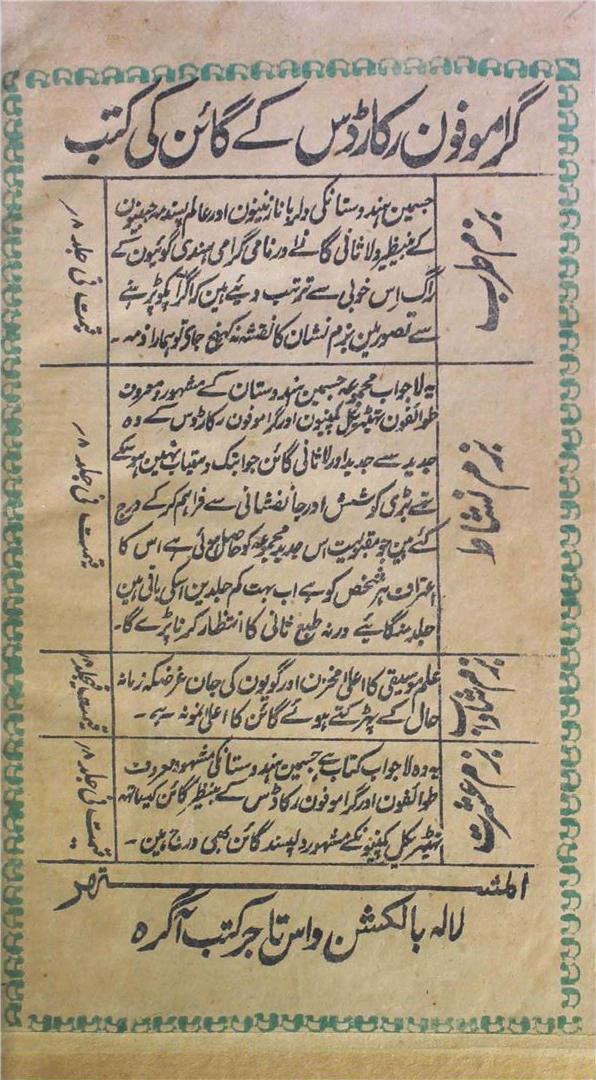 گراموفون رکارڈس کے گائن کی کتب
بزم طرب
جسمین ہندوستانکی دلربا نازنینون اور عالم پسند مہ جبینون
کے بینظیر و لاثانی گانے اور نامی گرامی ہندی گوئیون کے
راگ اس خوبی سے ترتیب دیئے ہین کہ اگر آپکو پڑہنے
سے تصور مین بزم نشان کا نقشہ نہ کہنچ جای تو ہمارا ذمہ۔
قیمت فی جلد ۸/
بزم نشاط
یہ لاجواب مجموعہ جسمین ہندوستان کے مشہور و معروف
طوائفون تہیٹریکل کمپنیون اور گراموفون رکارڈوس کے وہ
جدید سے جدید اور لاثانی گائن جو ابتک دستیاب نہین ہوسکے
تہے بڑی کوشش اور جانفشانی سے فراہم کرکے درج
کئے ہین جو مقبولیت اس جدید مجموعہ کو حاصل ہوئی ہے اس کا
اعتراف ہر شخص کو ہے اب بہت کم جلدین اسکی باقی ہین
جلد منگایئے ورنہ طبع ثانی کا انتظار کرنا پڑے گا۔
قیمت فی جلد ۸/
بزم شاداب
علم موسیقی کا اعلیٰ مخزن اور گویون کی جان غرضکہ زمانہ
حال کے پہڑکتے ہوئے گائن کا اعلیٰ نمونہ ہے۔
قیمت فیجلد ۸/
بزم عشرت
یہ وہ لاجواب کتاب ہے جسمین ہندوستانکی مشہور و معروف
طوائفون اور گراموفون رکاڈس کے بینظیر گائن کیساتہہ
تہیٹریکل کمپنیونکے مشہور دلپسند گائن بھی درج ہین۔
قیمت فی جلد ۸/
المشتہر
لالہ بالکشن داس تاجر کتب آگرہ